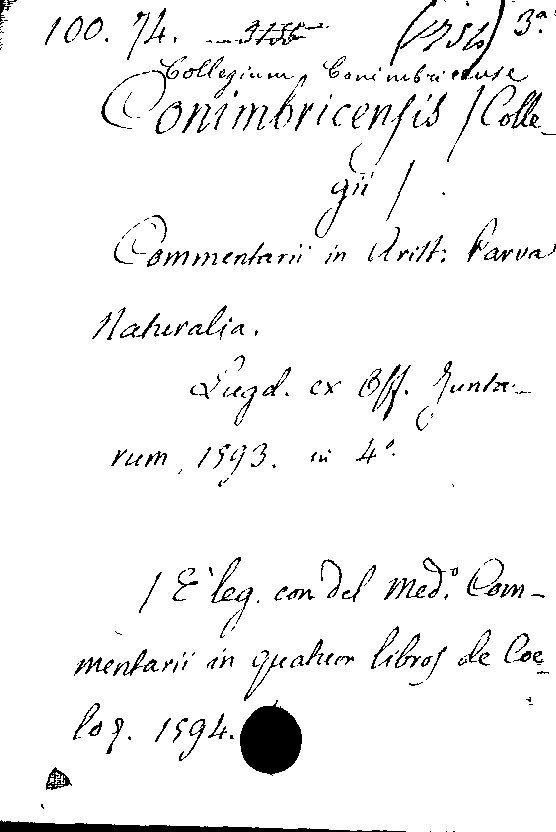 100. 74. 3156 (1754) 3ª.
Collegium Conimbricense
Conimbricensis / Colle-
gii /.
Commentarii in Arist: Parva
Naturalia.
Lugd. ex Off. Junta-
rum, 1593. in 4°.
/ E' leg. con del med.° Com-
mentarii in quatuor libros de Coe-
lo. 1594.